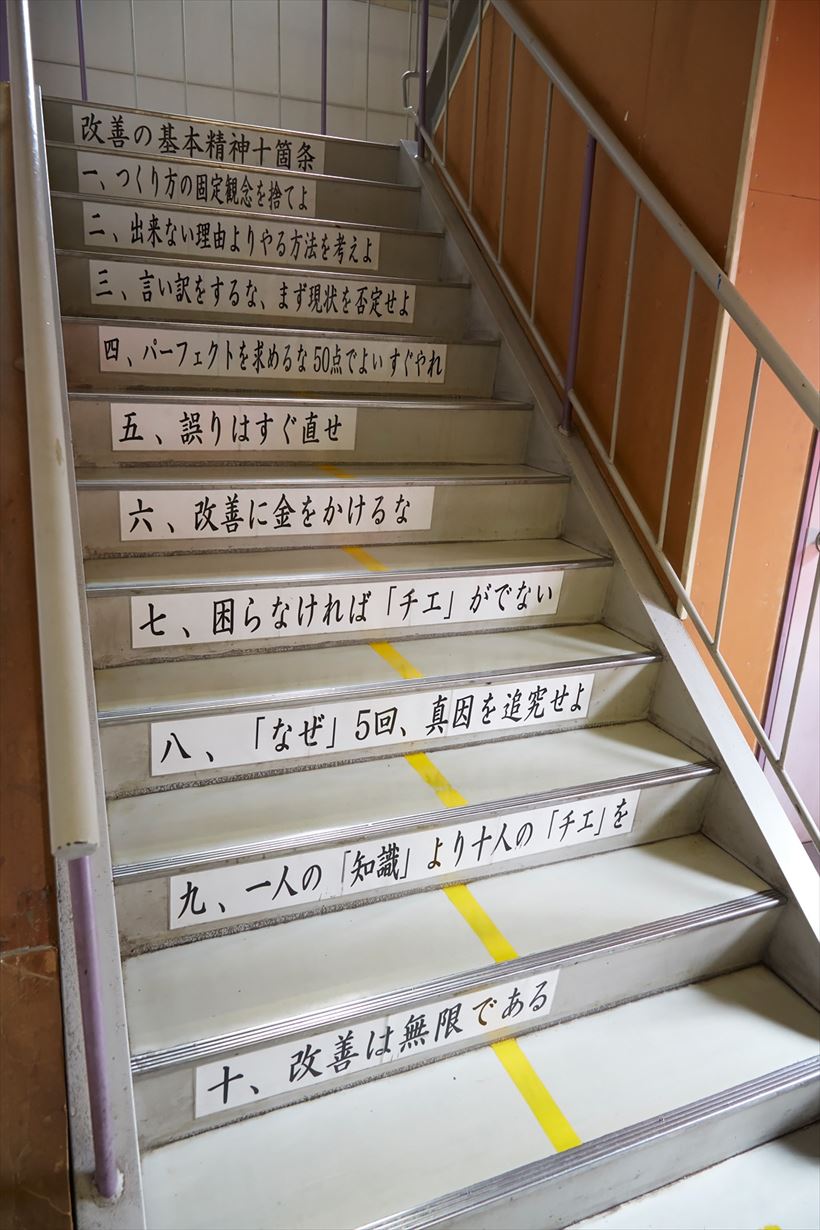 改善の基本精神十箇条
一、つくり方の固定観念を捨てよ
二、出来ない理由よりやる方法を考えよ
三、言い訳をするな、まず現状を否定せよ
四、パーフェクトを求めるな 50点でよい すぐやれ
五、誤りはすぐ直せ
六、改善に金をかけるな
七、困らなければ「チエ」がでない
八、「なぜ」5回、真因を追究せよ
九、一人の「知識」より十人の「チエ」を
十、改善は無限である